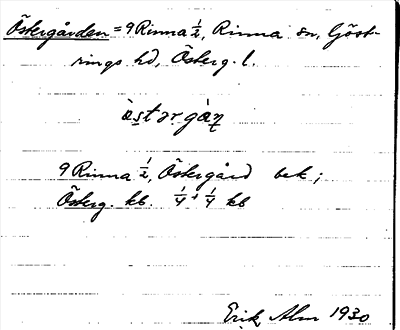 Östergården = 9 Rinna ½, Rinna sn, Göst-
rings hd, Österg. l.
östərgån
9 Rinna ½, Östergård bek;
Österg. kb ¼ + ¼ kb
Erik Alm 1930